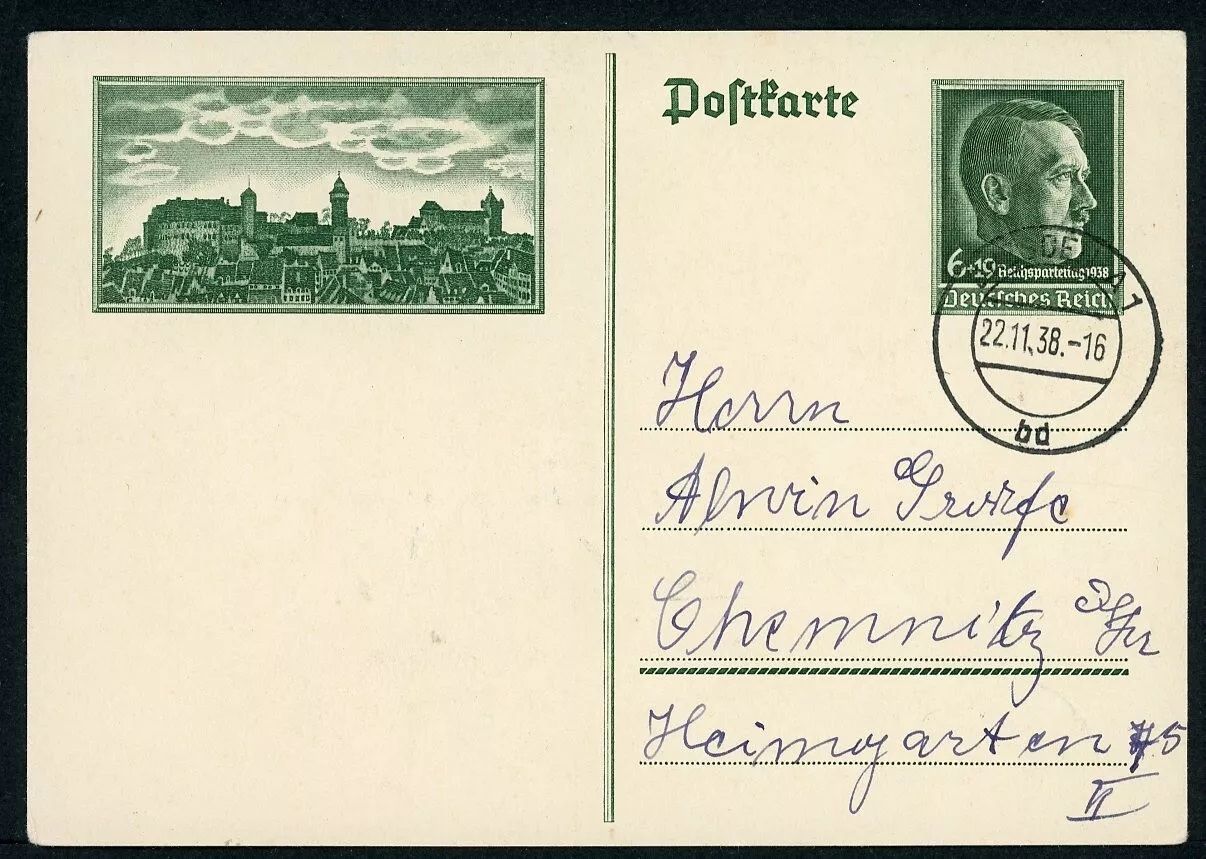 Postkarte
6+19 Reichsparteitag 1938
Deutsches Reich
22.11.38.-16
bd
Herrn
Alwin
Chemnitz
Heimgarten
VI